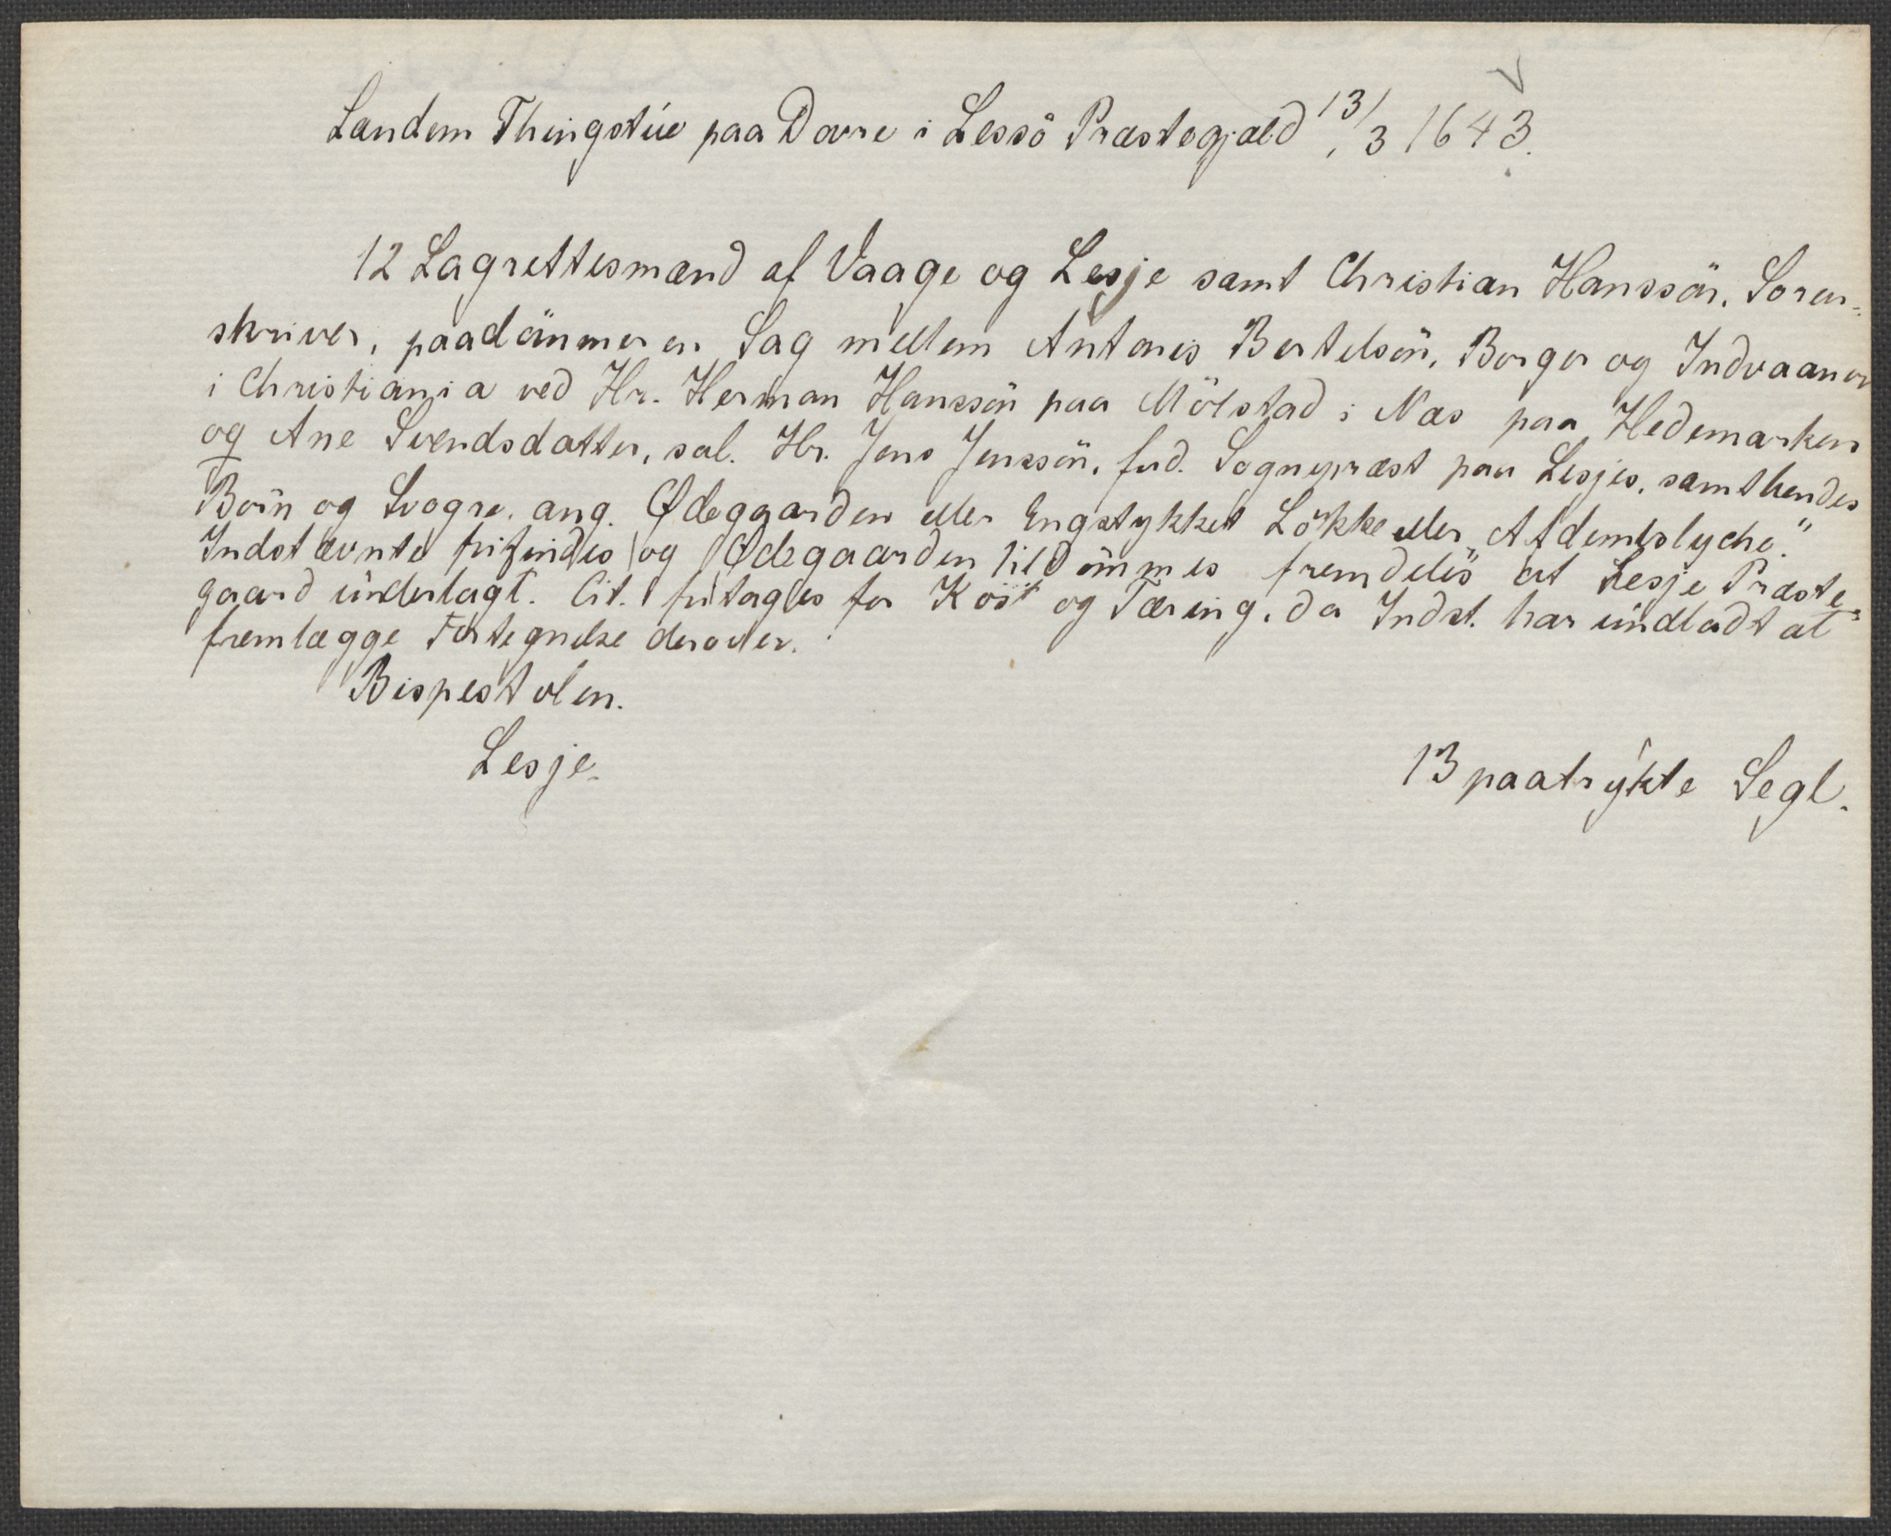 Landem Thingstue paa Dovre i Lessö Præstegjæld 13/3 1643.
12 Lagrettesmænd af Vaage og Lesje samt Christian Hanssön, Soren-
skriver, paadömmer en Sag mellem Antonis Bertelsön, Borger og Indvaaner
i Christiania ved Hr. Herman Hanssön paa Mölstad i Næs paa Hedemarken
og Ane Svendsdatter, sal. Hr. Jens Jenssön, fud. Sognepræst paa Lesjes, samt hendes
Börn og Svogre, ang. Ødegaarden eller Engstykket Lökke eller "Afdemslycke."
Indstævnte frifindes og Ødegaarden tildömmes fremdeles at Lesje Præste-
gaard underlagt. Cit. fritages for Kost og Tæring, da Indst. har undladt at
fremlægge Fortegnelse derover.
Bispestolen.
Lesje.
13 paatrykte Segl.